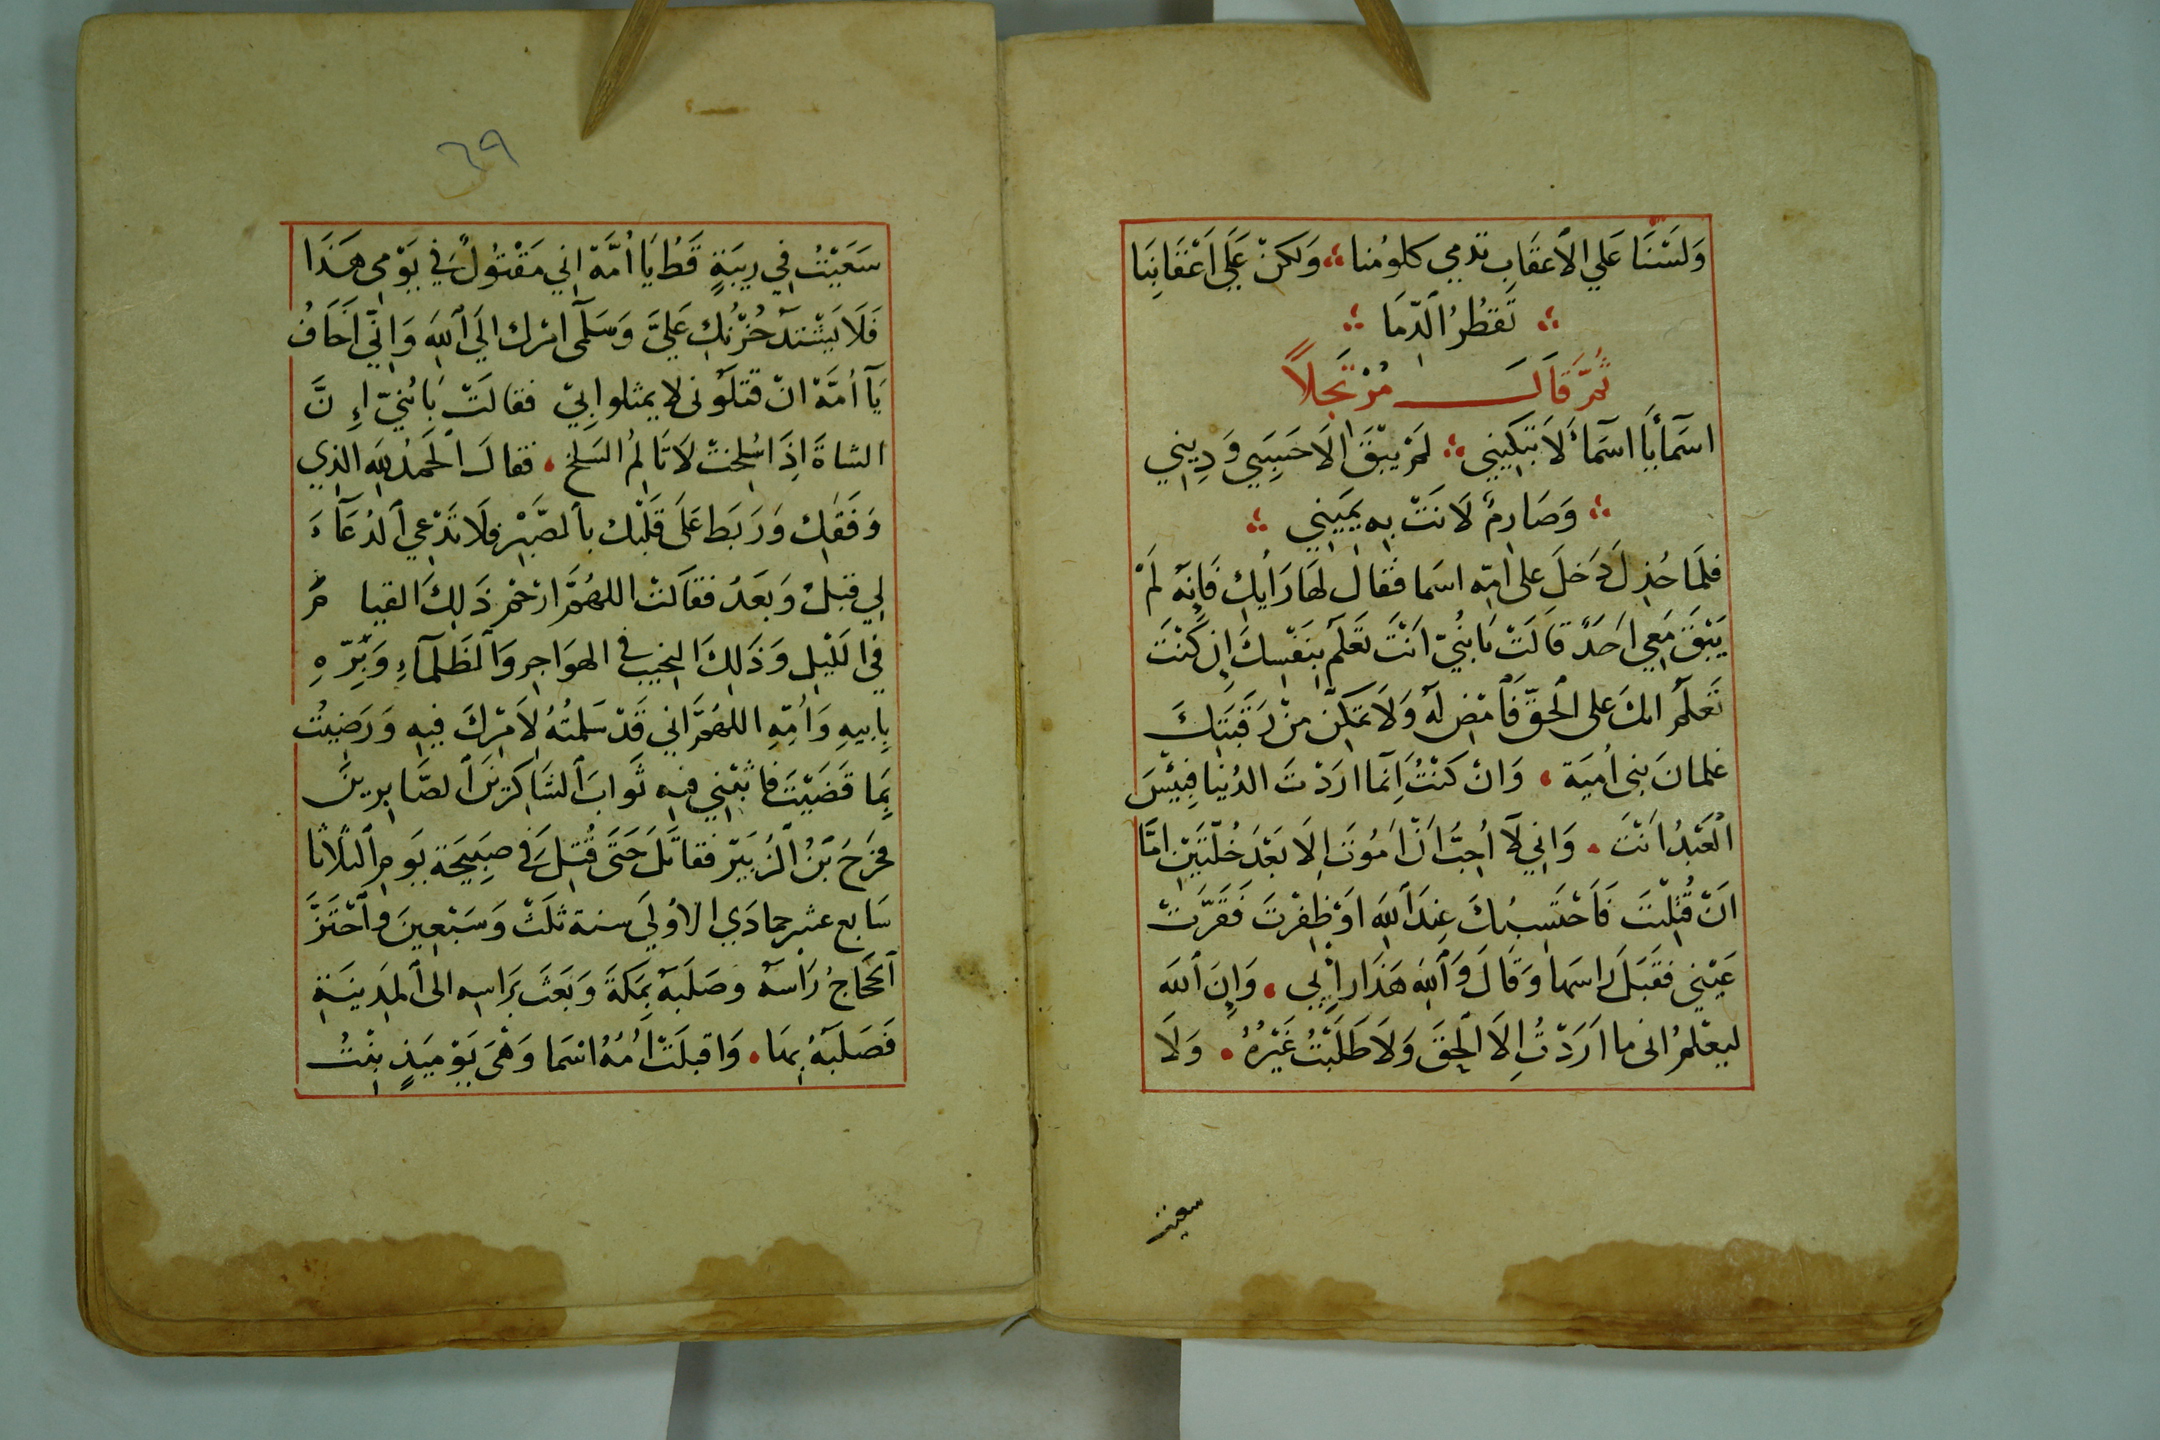 وَلَسْنَا عَلي الاَعقَابِ تدمي كلومُنا وَلكنْ عَلَي اَعْقَابِنَا
تَقطُرُ الدِّمَا
ثُمَّ قَالَ مُرْتَجِلاً
اسَمَأيَا اسَمَآءُ لَا تَبكِيِني لَمْ يَبْقَ اِلاَ حَسَبِي وَدِيني
وَصَارمٌ لَانَتْ بِهِ يَمِيِنِي
فلَما خُذِلَ دَخلَ على اُمّهِ اسَما فقالَ لهَا رَأيُكِ فَاِنّه لَمْ
يَبْقَ مَعِي اَحَدٌ قَالَتْ يَا بنُيّ اَنْتَ تَعَلم بِنَفْسِكَ اِن كُنْتَ
تَعَلَمُ انكَ على الحَقّ فَأمْضِ لَهُ وَلَا تمَكِنْ مِنْ رَقَبَتِكَ
غلمانَ بنى اُميَة وَانْ كنْتُ اِنَّما ارَدْتَ الدُنيا فبِئِسَ
الْعَبْدُ اَنْتَ وَاِني لَا اُحِبُّ اَنْ اَمُوتَ اِلا بَعْدَ خُلّتَيْن امَّا
اَنْ قُتِلْتَ فَاَحْتَسِبُكَ عِندَ اللهِ اوْ ظفِرْتَ فَقَرَّتْ
عَيْنِي فقَبَلَ رَاسَهَا وَقَالَ وَاللهِ هَذَا رَاْيِي وَاِنَ اللهَ
ليعْلمُ اني ما اَرَدْتُ اِلَا الحَقَ وَلَا طَلَبْتُ غَيْرُهُ وَلَا
سعيت
٣٩
سَعَيْتُ فِي رِيبَةٍ قَطُ يَا اُمَّهْ اِني مَقْتُولٌ فِي يَوْمِي هَذَا
فَلَا يَشْتدَّ حُزْنُكِ عَليَّ وَسَلّمى اَمْرك الَي اللهِ وَاِنّي اَخَافُ
يَآ اُمَّهْ انْ قتلُونى لا يمثلوا بِيْ فقالَتْ يَا بُنيّ اِنَّ
الشاةَ اِذَا سُلِخَتْ لَا تَالمُ السَلخ فقالَ الحَمدُ للهِ الذِي
وَفَقكِ وَرَبَطَ عَلَى قَلْبكِ بالصَّبْرِ فلَا تَدْعِي الدُعَآءَ
لِي قبْلُ وَبَعَدُ فقالَتْ اللهُمَّ ارْحَمْ ذَلِكَ القيا مَ
في الليْلِ وَذَلِكَ النجيب في الهوَاجرِ وَالظَلْمَآءِ وَبرِّهِ
بِابيهِ وَاُمِّهِ اللهُمَّ اِني قَدْ سَلمتُهُ لِاَمْرِكَ فِيهِ وَرَضيتُ
بِمَا قَضَيْتَ فاثْبْنِي فيهِ ثَوابَ الشَاكرِينَ الصَّابِرِينَ
فخرَجَ بْنُ الزُبيَرْ فقاتَلَ حَتىَ قُتِلَ في صَبِيحَة يَومِ الثلاثا
سَابع عشر جمادَي الاوُليَ سنة ثلَثْ وَسَبْعِينَ وَاَحْتَزَّ
الحَجَاجُ رَاْسَهُ وصَلَبَهُ بِمَكةَ وَبَعَثَ بَرَاسِهِ الى المَدِينَةِ
فَصَلبَهُ بِهَا وَاقبلَتْ اُمُهُ اسْمَا وَهْىَ يَوْمَئِذٍ بِنْتُ